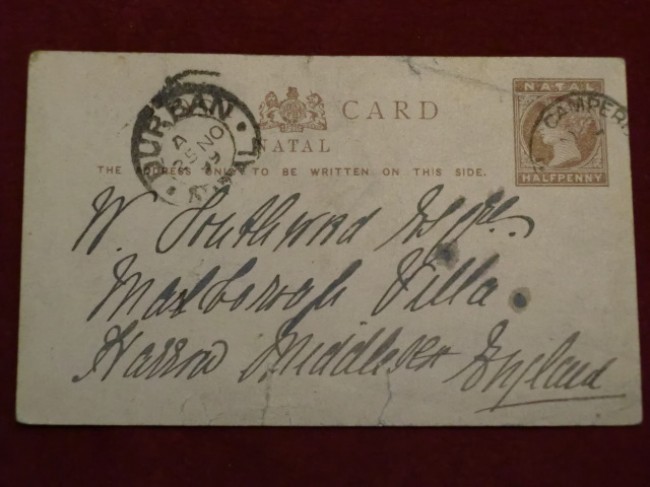 NATAL
CARD
CAMPER
DURBAN
A
25 NO
NATAL
NATAL
HALFPENNY
THE ADDRESS ONLY TO BE WRITTEN ON THIS SIDE.
W. Southward Esqre.
Marlborough Villa.
Harrow Middlesex England